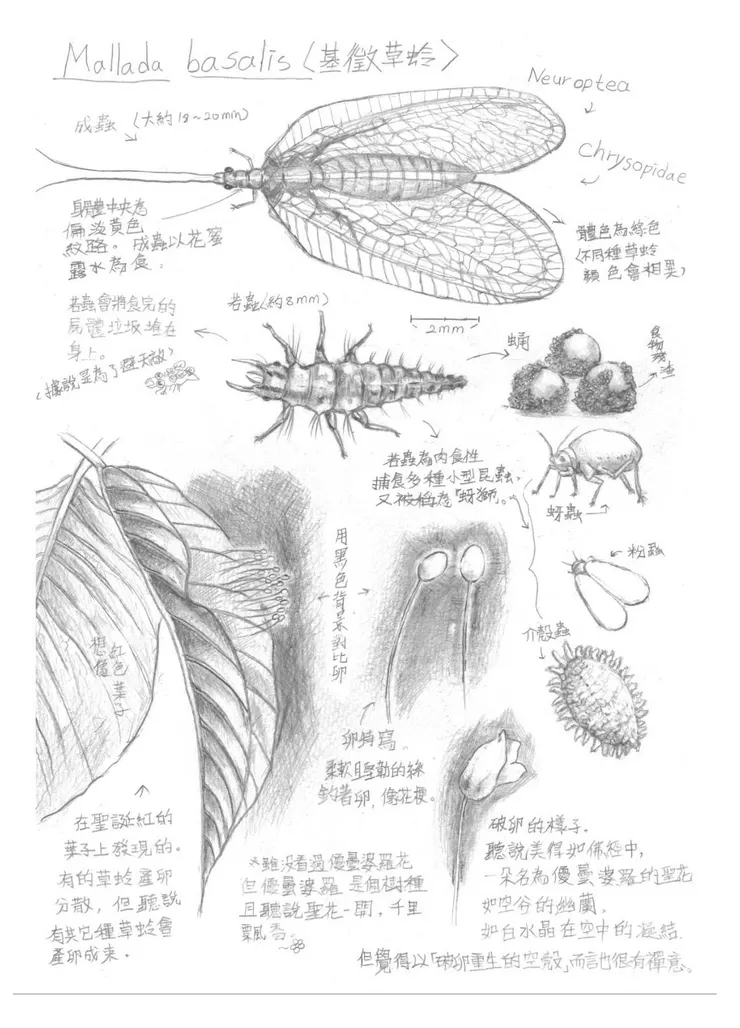 Mallada basalis〈基徵草蛉〉
Neuroptea
Chrysopidae
成蟲 (大約18~20mm)
身體中央為
偏淡黃色
紋路。成蟲以花蜜
露水為食。
體色為綠色
(不同種草蛉
顏色會相異)
若蟲會將食完的
屍體垃圾堆在
身上。
(據說是為了避天敵)
若蟲(約8mm)
2mm
蛹
食物殘渣
若蟲為肉食性
捕食多種小型昆蟲,
又被稱為「蚜獅」。
蚜蟲
粉蟲
介殼蟲
用黑色背景對比卵
想像
紅色葉子
卵特寫。
柔軟且堅勒的絲
鈎著卵,像花梗。
在聖誕紅的
葉子上發現的。
有的草蛉產卵
分散,但聽說
有其它種草蛉會
產卵成束。
*雖沒看過優曇婆羅花
但優曇婆羅是個樹種
且聽說聖花一開,千里
飄香。
破卵的樣子.
聽說美得如佛經中,
一朵名為優曇婆羅的聖花
如空谷的幽蘭,
如白水晶在空中的凝結.
但覺得以「破卵重生的空殼」而言也很有禪意。